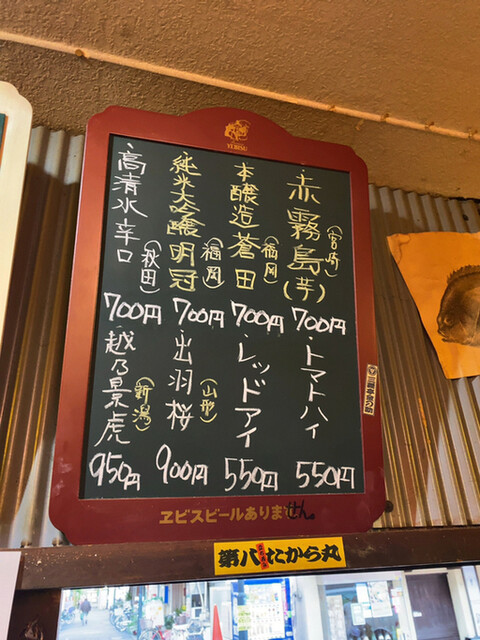 YEBISU
・赤霧島(芋)
(宮崎)
700円
・本醸造 蒼田
(福岡)
700円
・純米大吟醸 明冠
(福岡)
700円
・高清水 辛口
(秋田)
700円
・トマトハイ
550円
・レッドアイ
550円
・出羽桜
(山形)
900円
・越乃景虎
(新潟)
950円
ヱビスビールありません。
第八たから丸